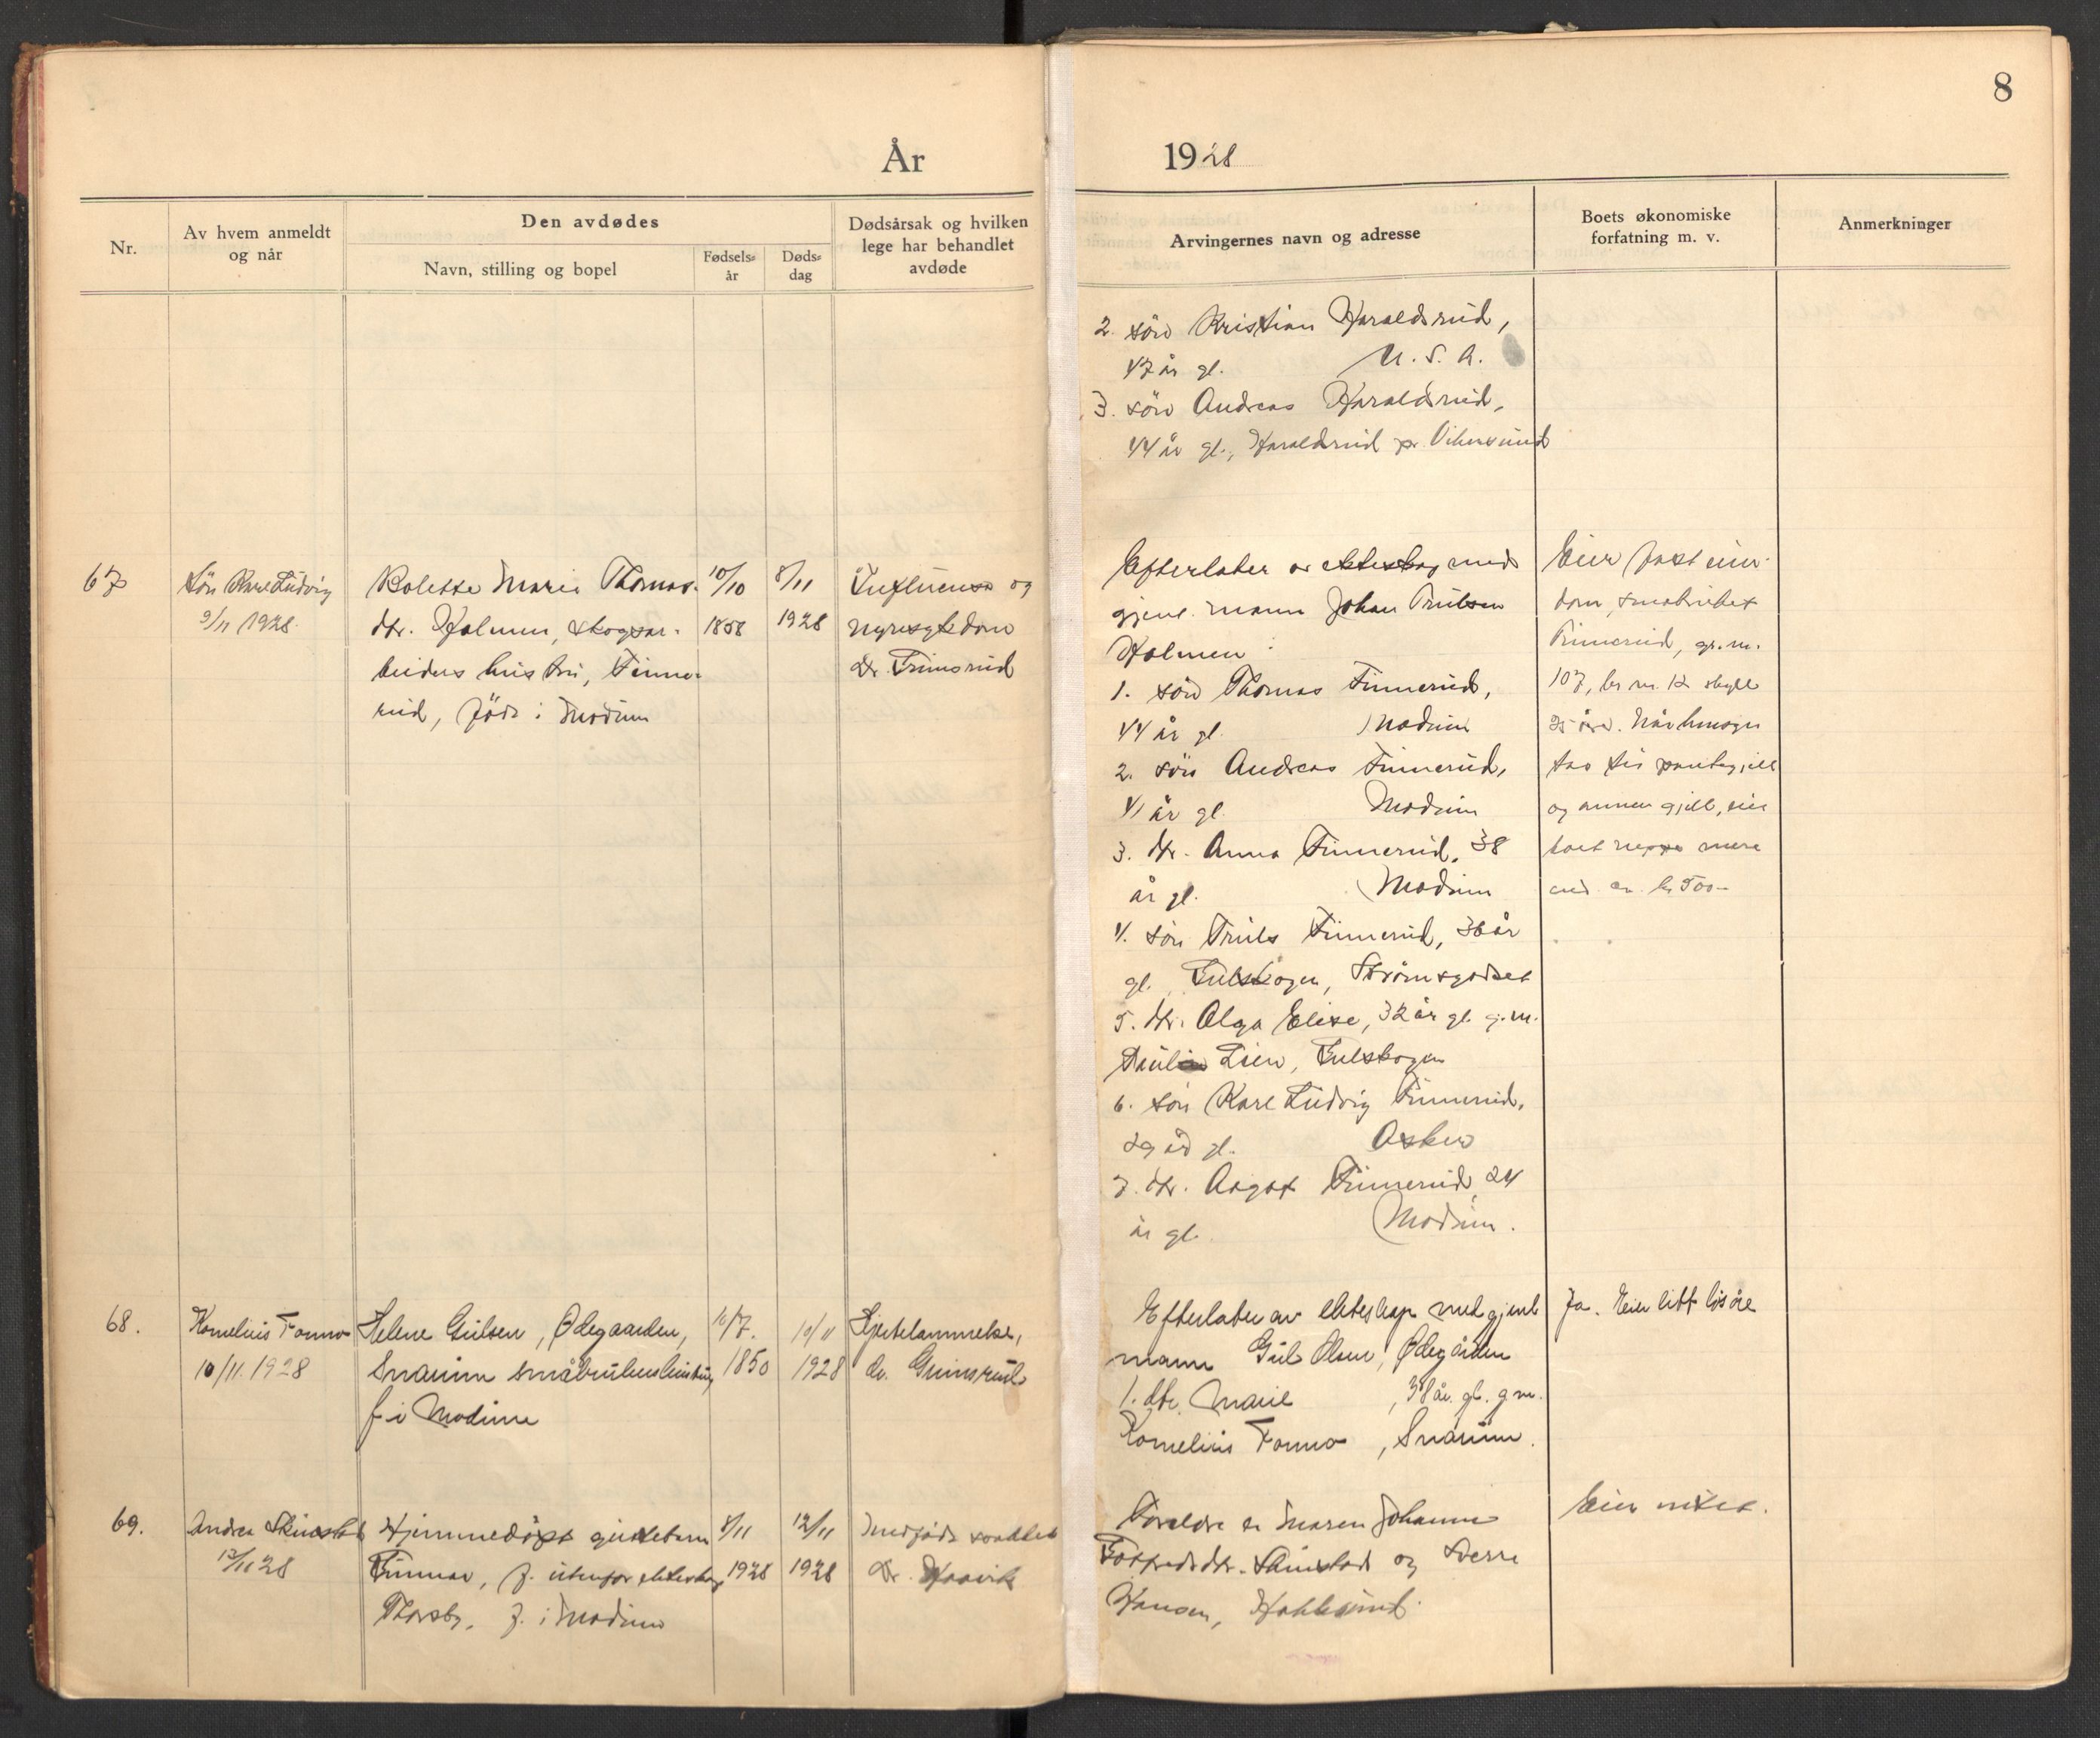 8
År
1928
Nr.
Av hvem anmeldt
og når
Den avdødes
Navn, stilling og bopel
Fødsels-
år
Døds-
dag
Dødsårsak og hvilken
lege har behandlet
avdøde
Arvingernes navn og adresse
Boets økonomiske
forfatning m. v.
Anmerkninger
2. søn Kristian Haraldsrud,
47 år gl. U. S. A.
3. søn Andreas Haraldsrud,
44 år gl., Haraldsrud pr. Vikersund
67
Søn Karl Ludvig
9/11 1928.
Bolette Marie Thomas-
dtr. Holmen, skogsar-
beiders hustru, Finne-
rud, född i Modum
10/10
1858
8/11
1928
Influensa og
nyresykdom
Dr. Grimsrud
Efterlater av ekteskap med
gjenl. mann Johan Trulsen
Holmen:
1. søn Thomas Finnerud,
44 år gl. Modum
2. søn Andreas Finnerud,
41 år gl. Modum
3. dtr. Anna Finnerud, 38
år gl. Modum
4. søn Truls Finnerud, 36 år
gl., Gulskogen, Strømsgodset
5. dtr. Olga Elise, 32 år gl. g.m.
Lien, Gulskogen
6. søn Karl Ludvig Finnerud,
29 år gl. Asker
7. dtr. Aagot Finnerud 24
år gl. Modum.
Eier fast eien-
dom, småbruket
Finnerud, gr. nr.
107, br. nr. 12 skyld
25 øre. Når hensyn
tas til pantegjell
og annen gjell, eier
boet neppe mere
end ca. kr 500-
68.
Kornelius Fonno
10/11 1928
Helene Gulsen, Ødegaarden,
Snarum småbrukerhustru
f. i Modum
16/7.
1850
10/11
1928
Hjertelammelse,
dr. Grimsrud
Efterlater av ekteskap med gjenl
mann Gul Olsen, Ødegården
1. dtr. Marie, 38 år. gl. g m.
Kornelius Fonno, Snarum.
Ja. Eier litt løsøre
69.
Andrea Skinstad
12/11 28
Hjemmedøpt guttebarn
Gunnar, f. utenfor ekteskap
Thorsby, f. i Modum
8/11
1928
12/11
1928
Medfødt svakhet
Dr. Haavik
Foreldre er Maren Johanne
dtr. Skinstad og Sverre
Hansen, Hokksund.
Eier intet.